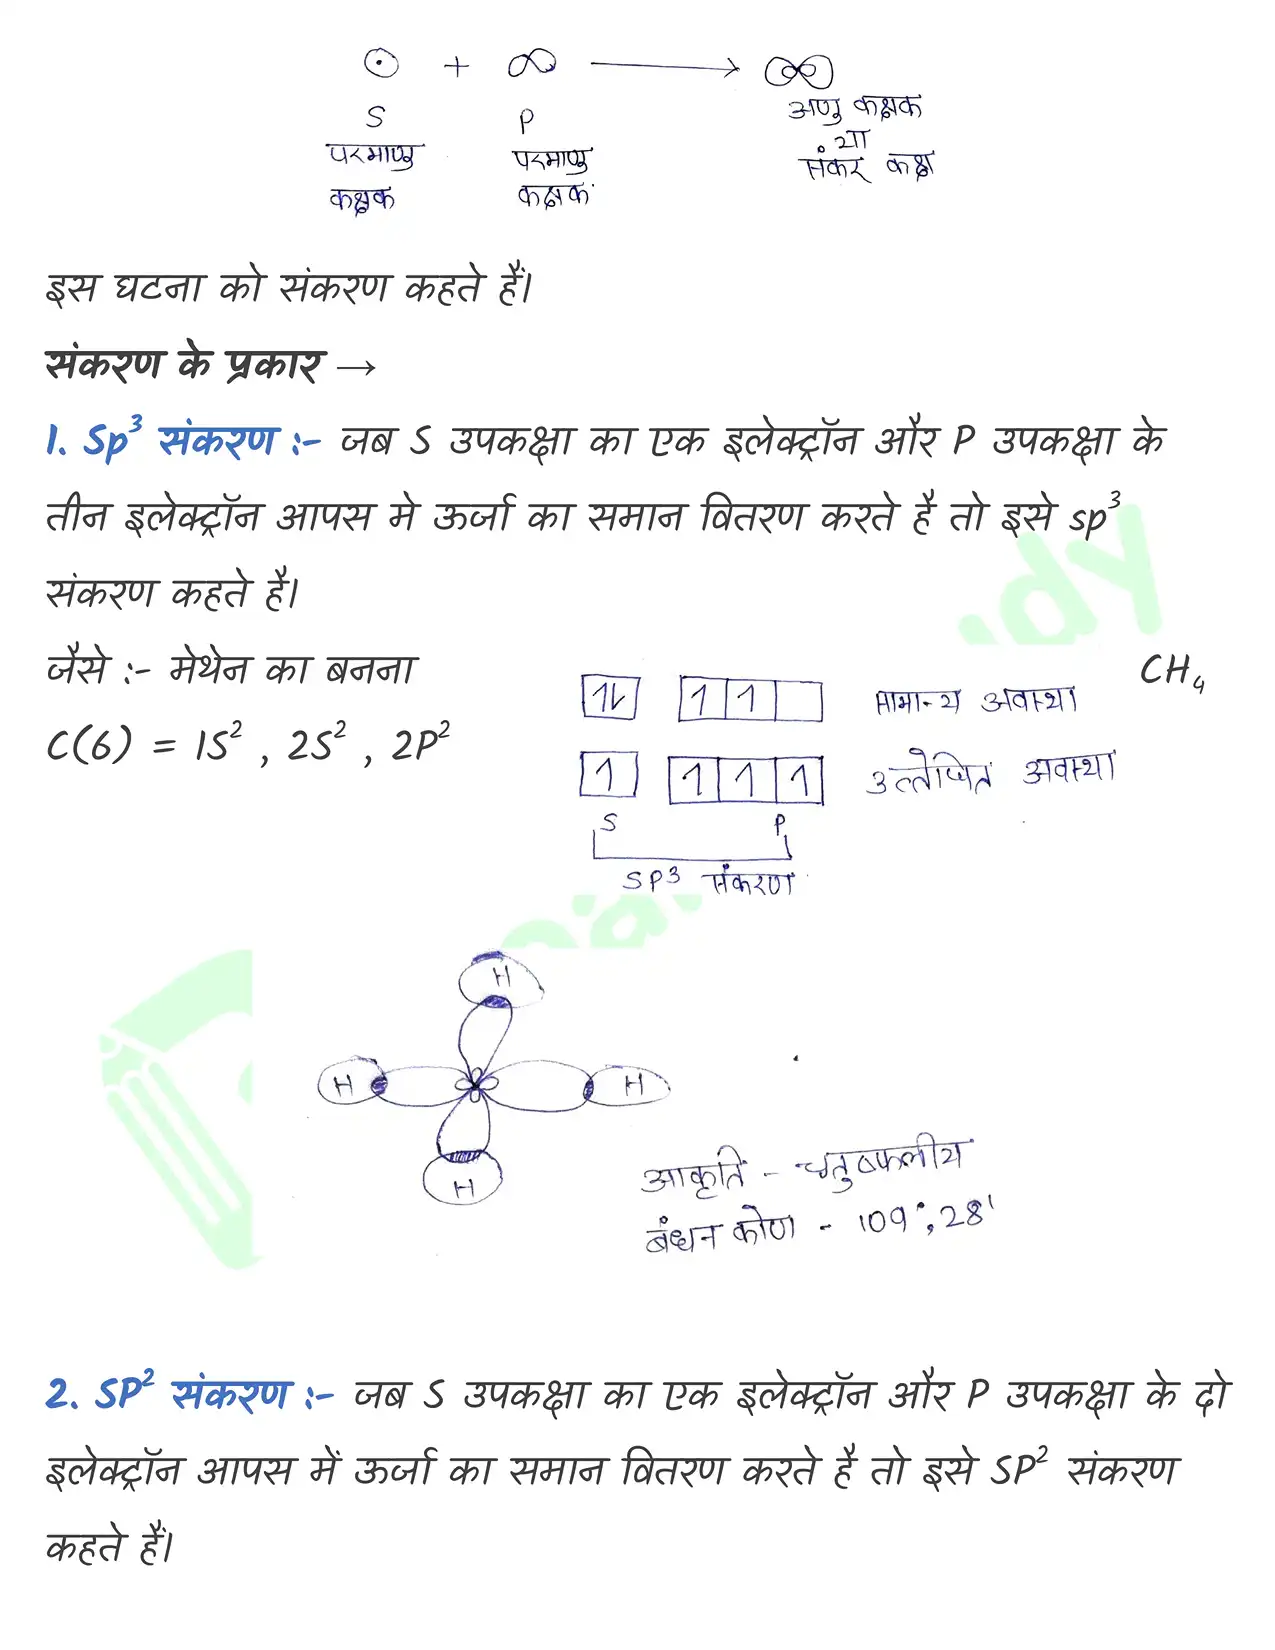 +
S P अणु कक्षक
परमाणु परमाणु या
कक्षक कक्षक संकर कक्ष
इस घटना को संकरण कहते हैं।
संकरण के प्रकार →
1. Sp³ संकरण :- जब S उपकक्षा का एक इलेक्ट्रॉन और P उपकक्षा के
तीन इलेक्ट्रॉन आपस मे ऊर्जा का समान वितरण करते है तो इसे sp³
संकरण कहते है।
जैसे :- मेथेन का बनना CH₄
1L 1 1 सामान्य अवस्था
C(6) = 1S² , 2S² , 2P²
1 1 1 1 उत्तेजित अवस्था
S P
SP³ संकरण
H
H H
H
आकृति - चतुष्फलीय
बंधन कोण - 109°,28'
2. SP² संकरण :- जब S उपकक्षा का एक इलेक्ट्रॉन और P उपकक्षा के दो
इलेक्ट्रॉन आपस में ऊर्जा का समान वितरण करते है तो इसे SP² संकरण
कहते हैं।